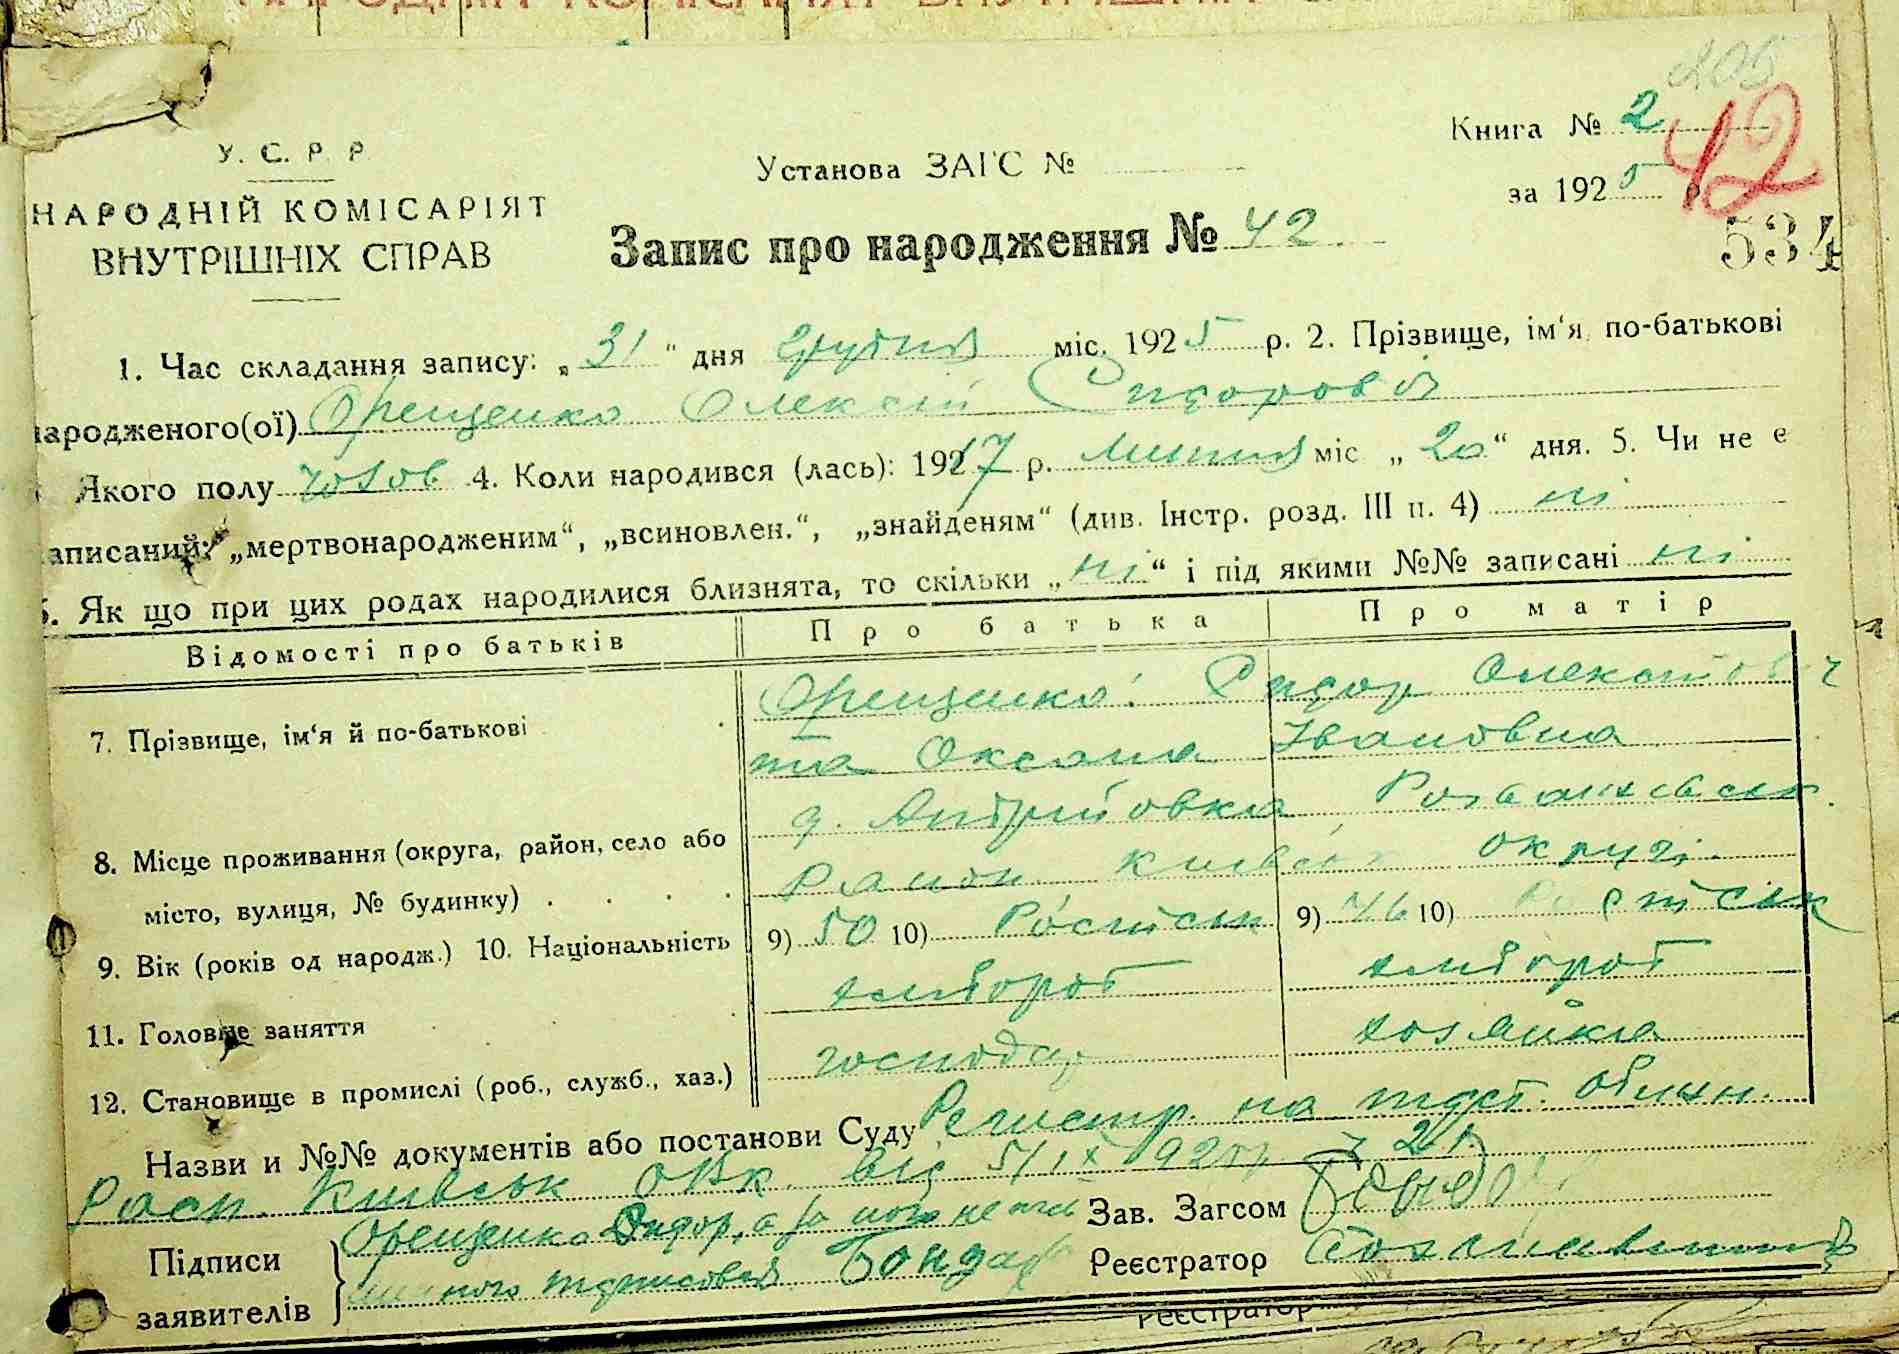 205
У. С. Р. Р.
НАРОДНІЙ КОМІСАРІЯТ
ВНУТРІШНІХ СПРАВ
Установа ЗАГС №
Книга № 2
за 1925 р.
42
534
Запис про народження № 42
1. Час складання запису: „31“ дня грудня міс. 1925 р. 2. Прізвище, ім‘я, по-батькові
народженого(ої) Орещенко Олексій Сидорович
Якого полу чолов 4. Коли народився (лась): 1917 р. липня міс „20“ дня. 5. Чи не є
записаний: „мертвонародженим“, „всиновлен.“, „знайденям“ (див. Інстр. розд. III п. 4) ні
6. Як що при цих родах народилися близнята, то скільки „ні“ і під якими №№ записані ні
Відомості про батьків Про батька Про матір
7. Прізвище, ім‘я й по-батькові Орещенко Сидор
та Оксана Івановна
8. Місце проживання (округа, район, село або місто, вулиця, № будинку) д. Андрійовка
район. Київськ округі
9. Вік (років од народж.) 10. Національність 9) 50 10) Російськ 9) 46 10) Російськ
11. Головне заняття хлібороб хлібороб
12. Становище в промислі (роб., служб., хаз.) господар хозяйка
Назви и №№ документів або постанови Суду Регистр. на підст. обіжн.
Київськ ОВК від
Підписи заявителів Орещенко Сидор, а за його
підписався Бондар
Зав. Загсом
Реєстратор
Реєстратор